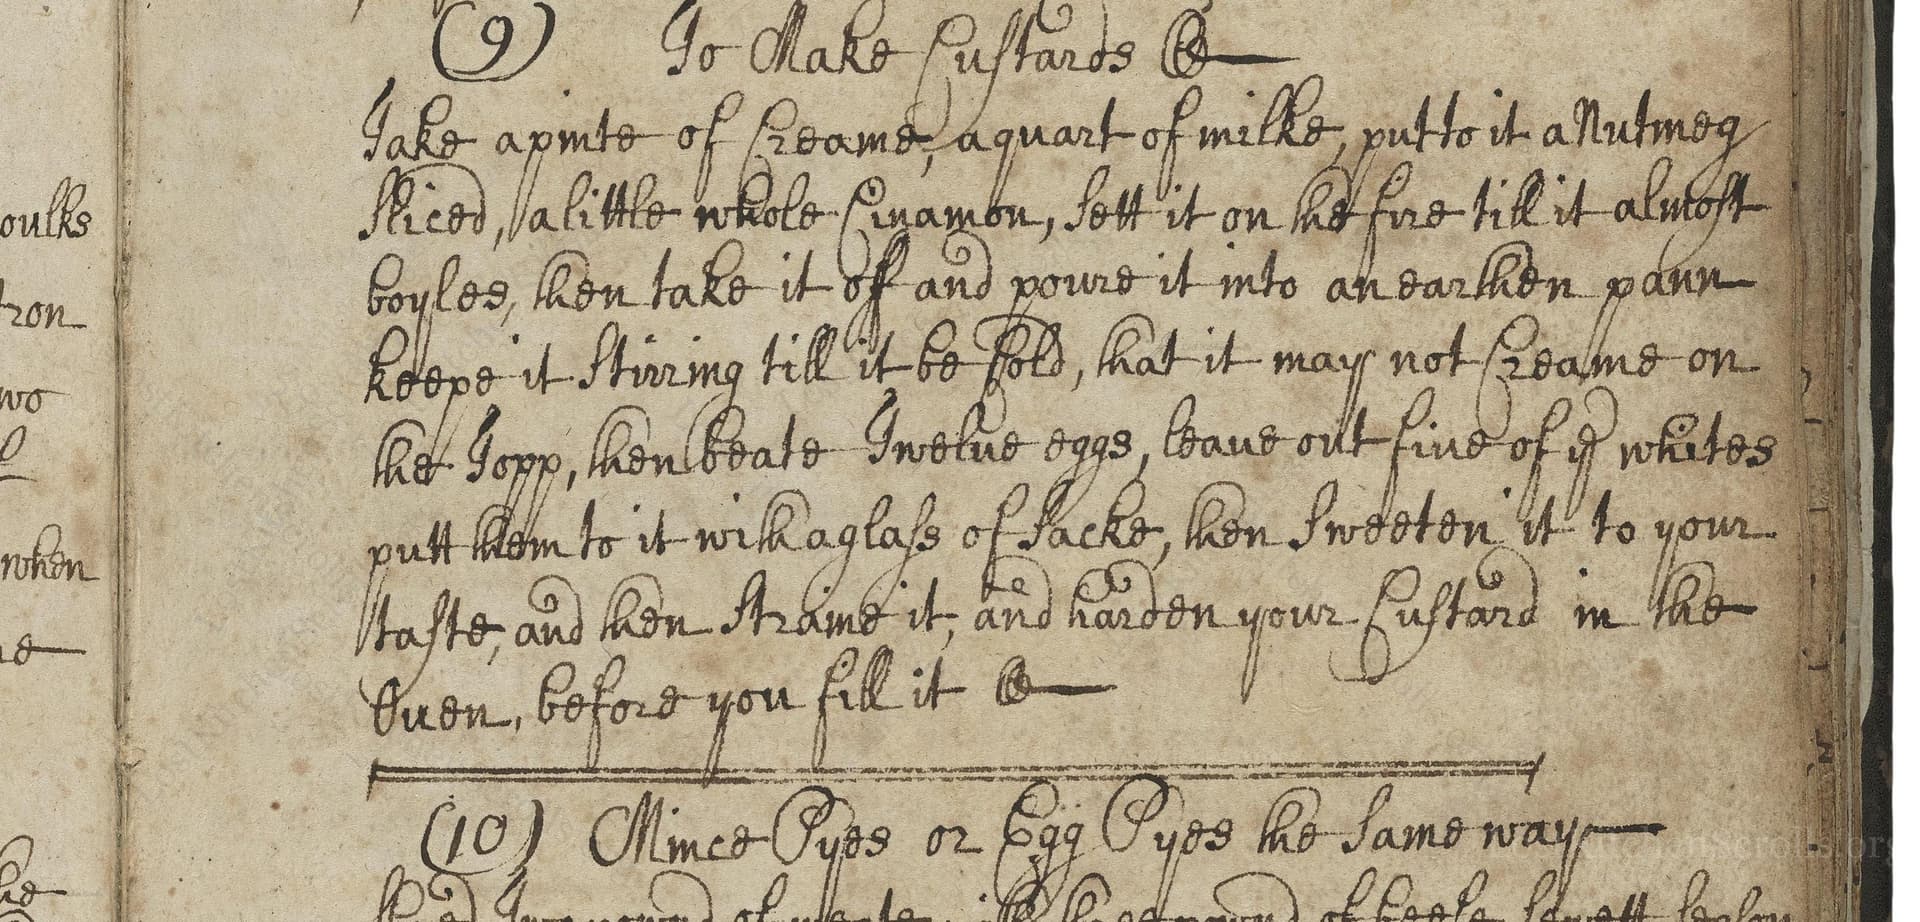 (9) To Make Custards
Take a pinte of Creame, a quart of milke, putt to it a Nutmeg
oulks
Sliced, a little whole Cinamon, Sett it on the fire till it almost
boyles, then take it off and poure it into an earthen pann
tron
keepe it Stirring till it be Cold, that it may not Creame on
wo
the Topp, then beate Twelve eggs, leave out five of ye whites
putt them to it with a glass of Sacke, then Sweeten it to your
when
taste, and then Straine it, and harden your Custard in the
Oven, before you fill it
(10) Mince Pyes or Egg Pyes the Same way